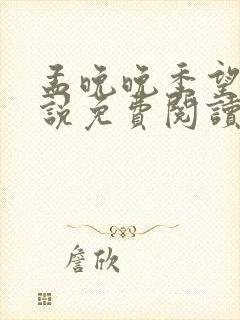 孟晚晚季望
說免費閱讀
詹欣